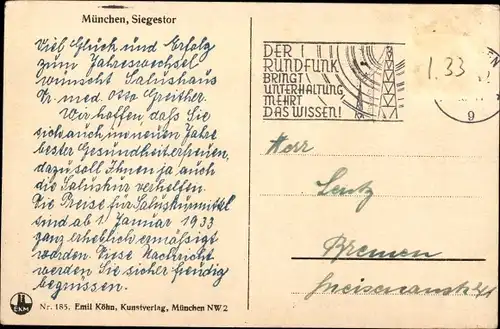 München, Siegestor
Viel Glück und Erfolg
zum Jahreswechsel
wünscht Salushaus
Dr. med. Otto Greither.
Wir hoffen, daß Sie
sich auch im neuen Jahre
bester Gesundheit erfreuen,
dazu soll Ihnen ja auch
die Saluskur verhelfen.
Die Preise für Saluskurmittel
sind ab 1. Januar 1933
ganz erheblich ermäßigt
worden. Diese Nachricht
werden Sie sicher freudig
begrüssen.
Nr. 185. Emil Köhn, Kunstverlag, München NW 2
EKM
DER
RUNDFUNK
BRINGT
UNTERHALTUNG
MEHRT
DAS WISSEN!
1.33
9
Herr
Lentz
Bremen